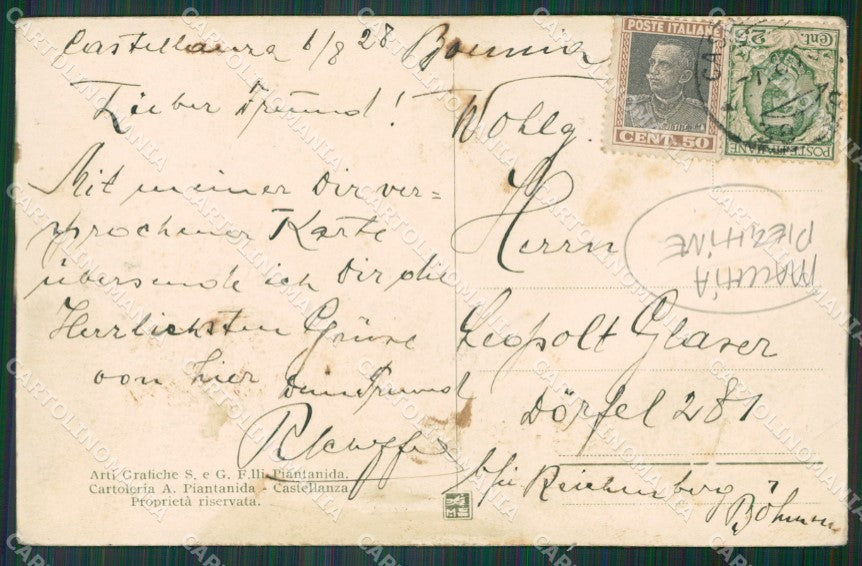 Castellanza 6/8 28
Lieber Freund!
Mit meiner Dir ver=
sprochener Karte
übersende ich Dir die
Herrlichsten Grüsse
von hier Dein Freund
Arti Grafiche S. e G. F.lli Piantanida.
Cartoleria A. Piantanida - Castellanza
Proprietà riservata.
Wohlg.
Herrn
Leopolt Glaser
Dörfel 281
bei Reichenberg
Böhmen
POSTE ITALIANE
CENT. 50
POSTE ITALIANE
Cent. 25
CARTOLINOMANIA